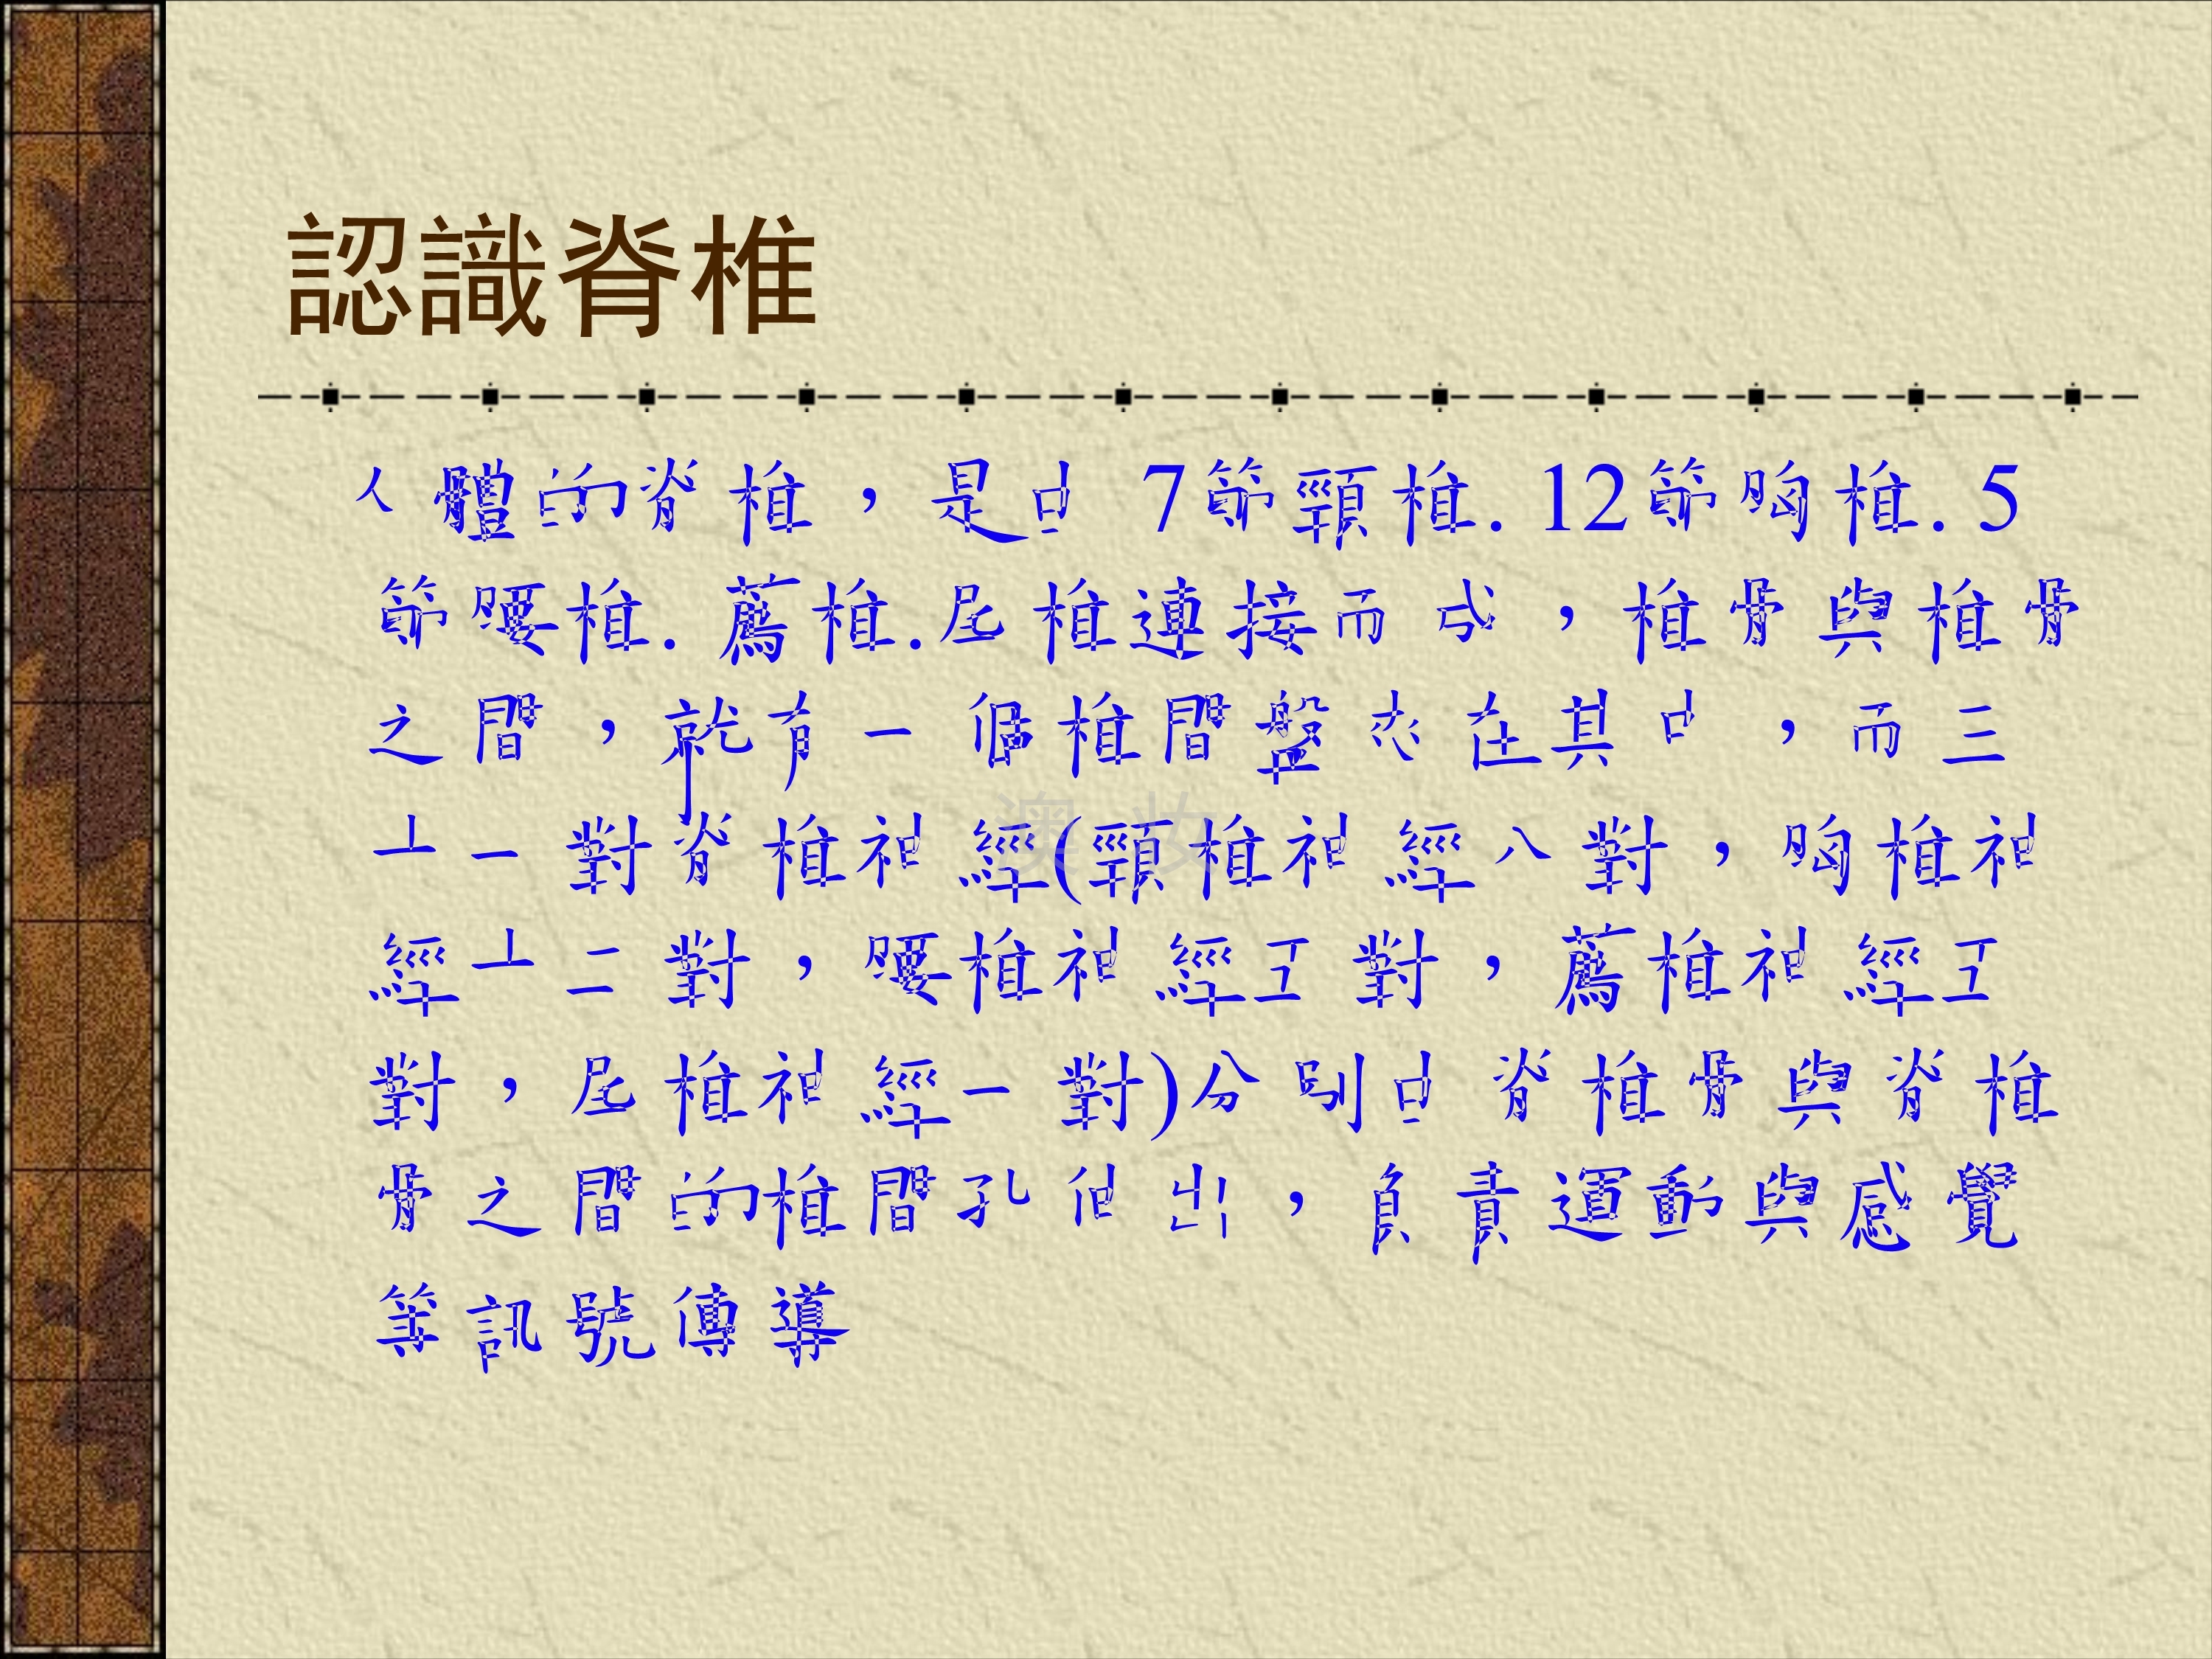 認識脊椎
人體的脊椎，是由7節頸椎.12節胸椎.5
節腰椎.薦椎.尾椎連接而成，椎骨與椎骨
之間，就有一個椎間盤夾在其中，而三
十一對脊椎神經(頸椎神經八對，胸椎神
經十二對，腰椎神經五對，薦椎神經五
對，尾椎神經一對)分別由脊椎骨與脊椎
骨之間的椎間孔伸出，負責運動與感覺
等訊號傳導